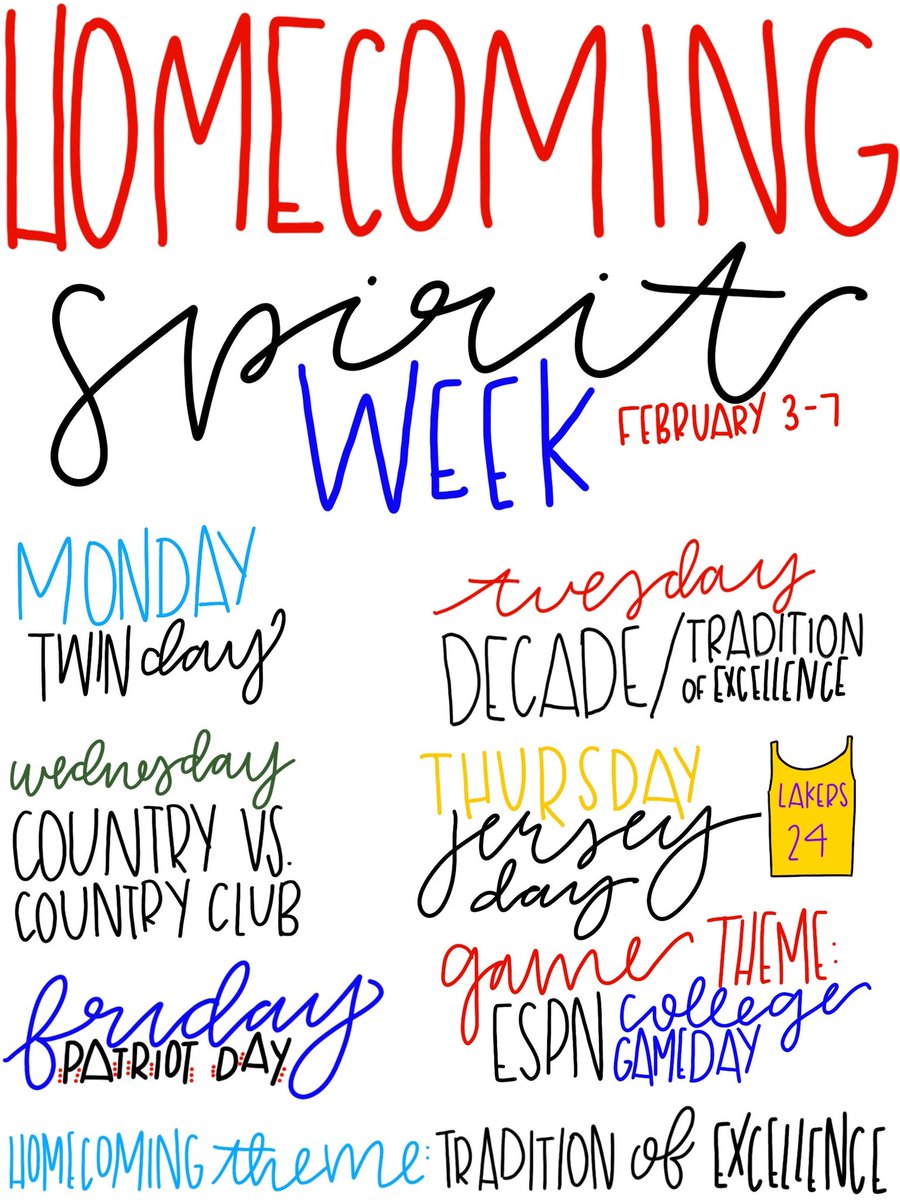 HOMECOMING
spirit
WEEK
FEBRUARY 3-7
MONDAY
TWIN day
tuesday
DECADE/TRADITION
OF EXCELLENCE
wednesday
COUNTRY VS.
COUNTRY CLUB
THURSDAY
jersey
day
LAKERS
24
friday
PATRIOT DAY
game THEME:
ESPN college
GAMEDAY
HOMECOMING theme: TRADITION of EXCELLENCE